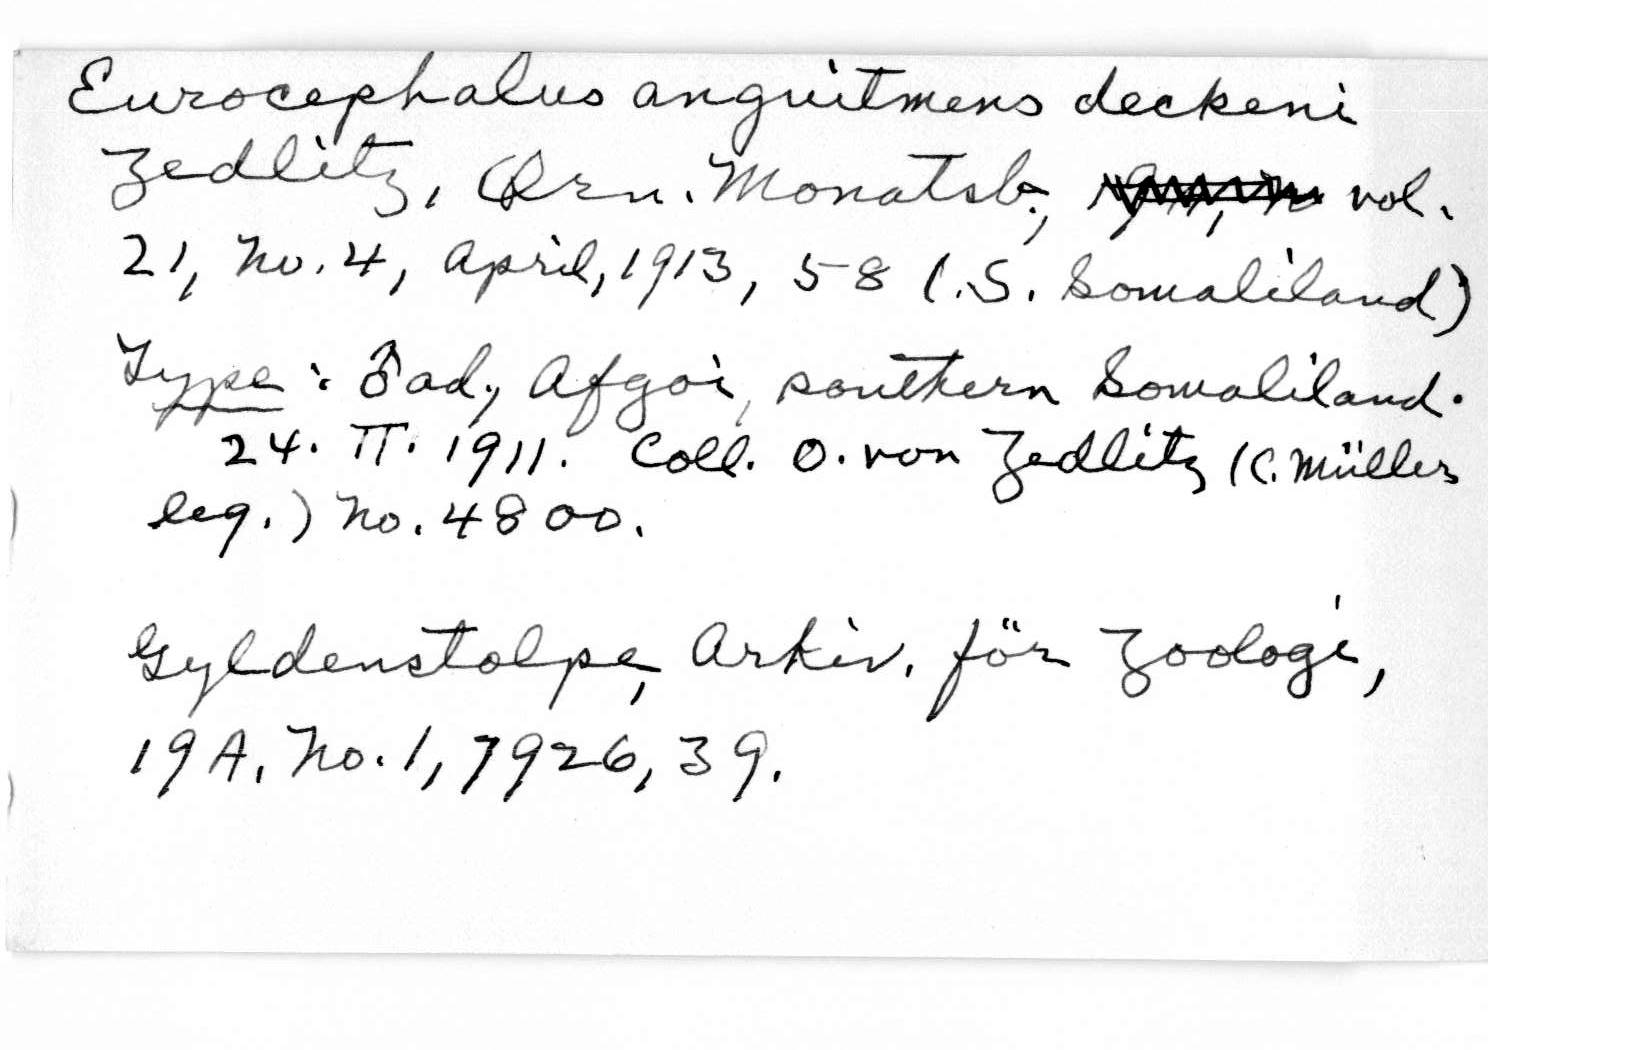 Eurocephalus anguitmens deckeni
Zedlitz, Orn. Monatsb., vol.
21, no. 4, April, 1913, 58 (.S. Somaliland)
Type: ♂ ad., Afgoi, southern Somaliland.
24. II. 1911. Coll. O. von Zedlitz (C. Müller
leg.) No. 4800.
Gyldenstolpe, Arkiv. för Zoologi,
19A, No. 1, 1926, 39.